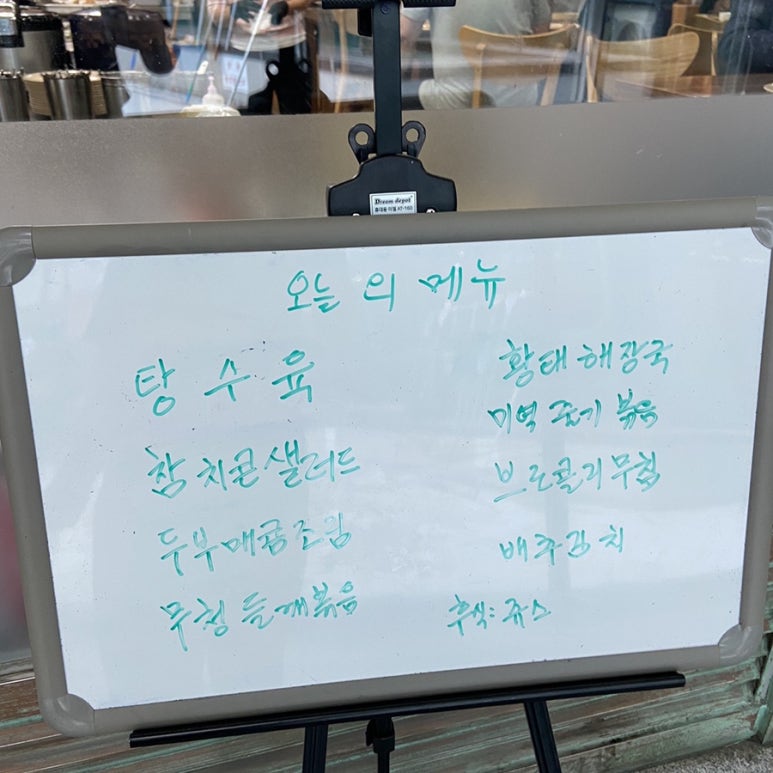 Dream depot
휴대용 이젤 AT-160
오늘의 메뉴
탕수육
참치콘샐러드
두부매콤조림
무청들깨볶음
황태해장국
미역줄기볶음
브로콜리무침
배추김치
후식: 쥬스